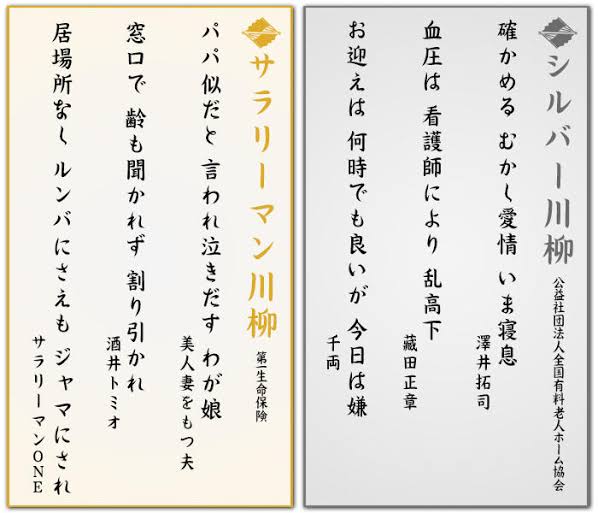 シルバー川柳
公益社団法人全国有料老人ホーム協会
確かめる むかし愛情 いま寝息
澤井拓司
血圧は 看護師により 乱高下
藏田正章
お迎えは 何時でも良いが 今日は嫌
千両
サラリーマン川柳
第一生命保険
パパ似だと 言われ泣きだす わが娘
美人妻をもつ夫
窓口で 齢も聞かれず 割り引かれ
酒井トミオ
居場所なし ルンバにさえも ジャマにされ
サラリーマンONE